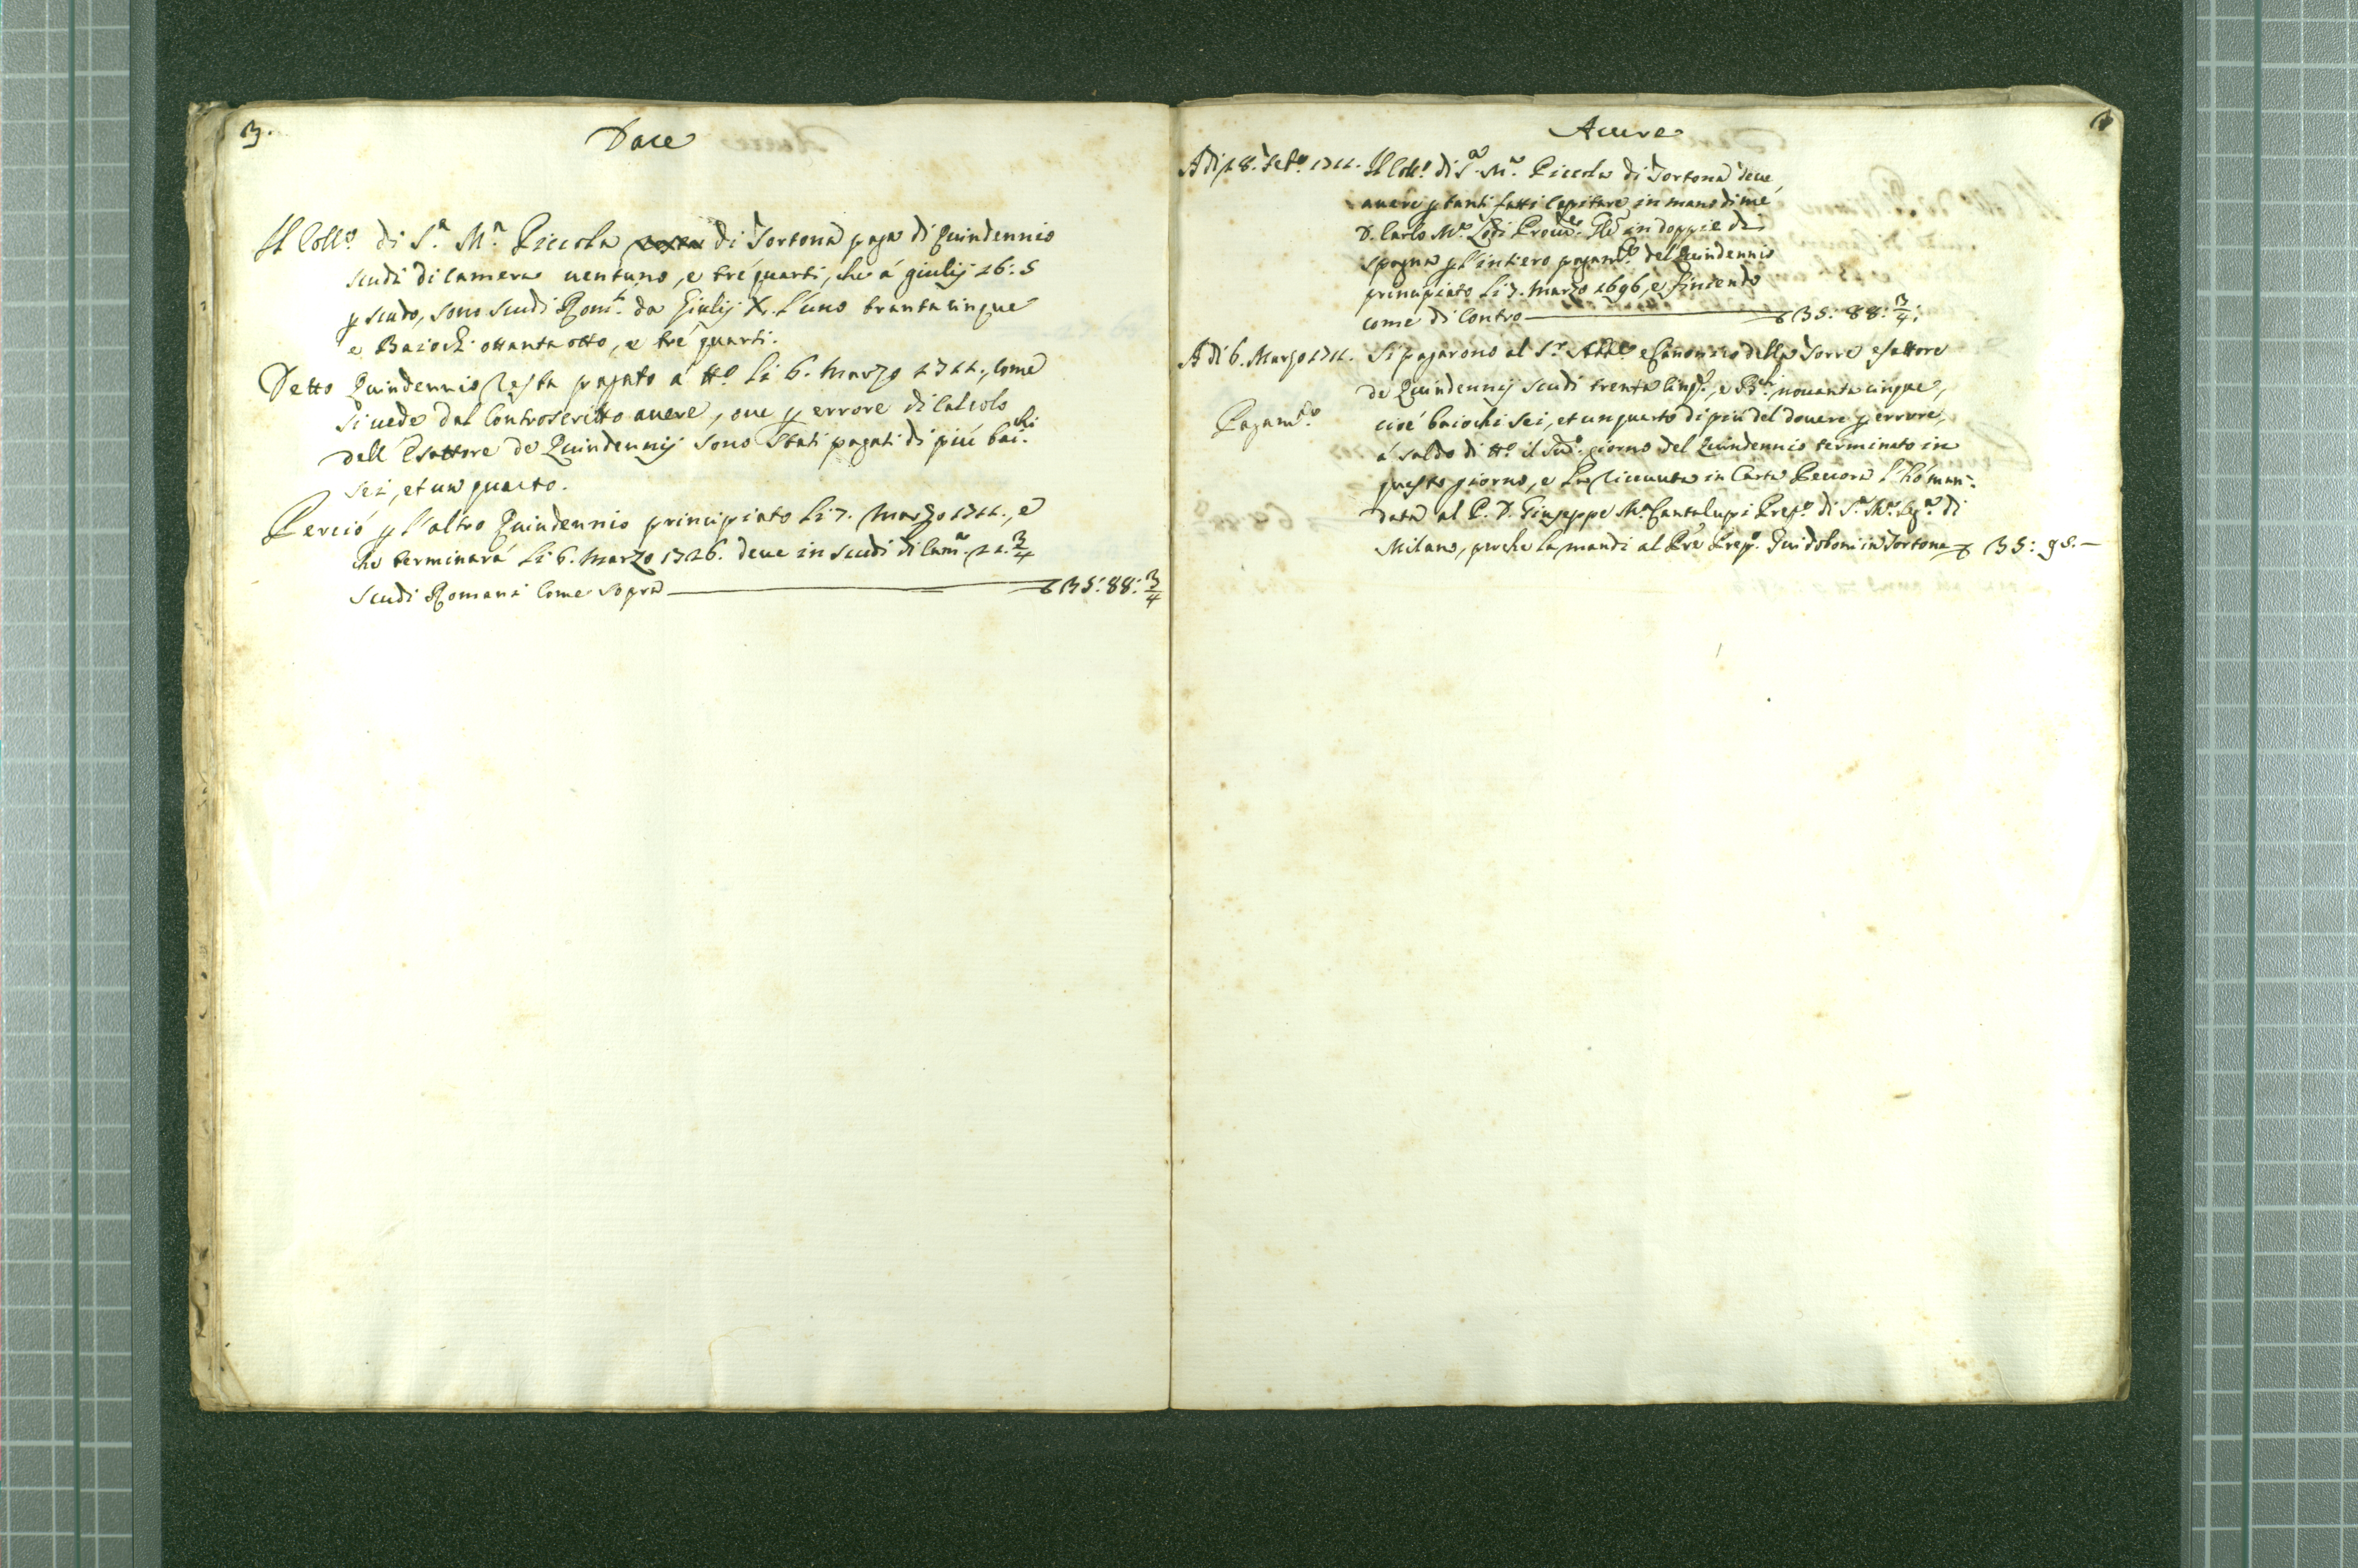 3.
Dare
Il Coll.o di S.a M.a Piccola di Tortona paga di Quindennio
scudi di Camera uentuno, e tré quarti, che á giulij 16:5
p scudo, sono scudi Rom.i da Giulij X. l'uno trentacinque
e Baiochi ottantaotto, e tré quarti.
Detto Quindennio resta pagato á tt.o li 6. Marzo 1711., come
si uede dal Controscritto auere, oue p errore di Calcolo
dell'Esattore de Quindennij sono stati pagati di piú bai.chi
sei, et un quarto.
Perció p l'altro Quindennio principiato li 7. Marzo 1711., e
che terminará li 6. Marzo 1726. deue in scudi di Cam.a 21. 3/4
scudi Romani come sopra 35:88: 3/4
Auere
Adi 18. Feb.o 1711. Il Coll.o di S.a M.a Piccola di Tortona deue
auere p tanti fatti capitare in mano di me
D. Carlo M.a Lodi Proc.re Gle in doppie di
spagna p l'intiero pagam.to del Quindennio
principiato li 7. Marzo 1696, e finiendo
come di Contro 35: 88: 3/4:
Adi 6. Marzo 1711. Si pagarono al S.r Abbe e Canonico della Torre esattore
de Quindennij scudi trenta cinq.e, e B.chi nouantacinque,
Pagam.to
cioé baiochi sei, et un quarto di piú del douere p errore,
á saldo di tt.o il sud.o giorno del Quindennio terminato in
questo giorno, e riceuuta in Carta Pecora l'hó man-
data al P. D. Giuseppe M.a Cantalupi Prep.o di S.a M.a Seg.a di
Milano, perche la mandi al Pre Prep.o Guidoboni in Tortona 35: 95.—